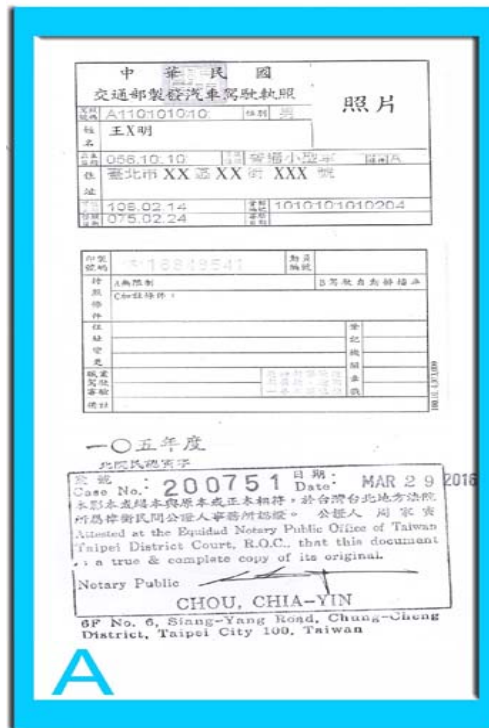 中華民國
交通部製發汽車駕駛執照
照片
A110101010 性別 男
姓名 王X明
056.10.10 普通小型車
住址 臺北市 XX 區 XX 街 XXX 號
106.02.14 1010101010204
075.02.24
16848541
持照條件 A無限制 B駕駛自動排擋車
C加註條件：
住址變更 登記機關章戳
職業駕駛審驗
備註
一〇五年度
北院民認寅字
Case No.: 200751 日期: Date: MAR 29 2016
本影本或繕本與原本或正本相符。於台灣台北地方法院
所屬 民間公證人事務所認證。 公證人 周家寅
Attested at the Equidad Notary Public Office of Taiwan
Taipei District Court, R.O.C., that this document
is a true & complete copy of its original.
Notary Public
CHOU, CHIA-YIN
6F No. 6, Siang-Yang Road, Chung-Cheng
District, Taipei City 100, Taiwan
A